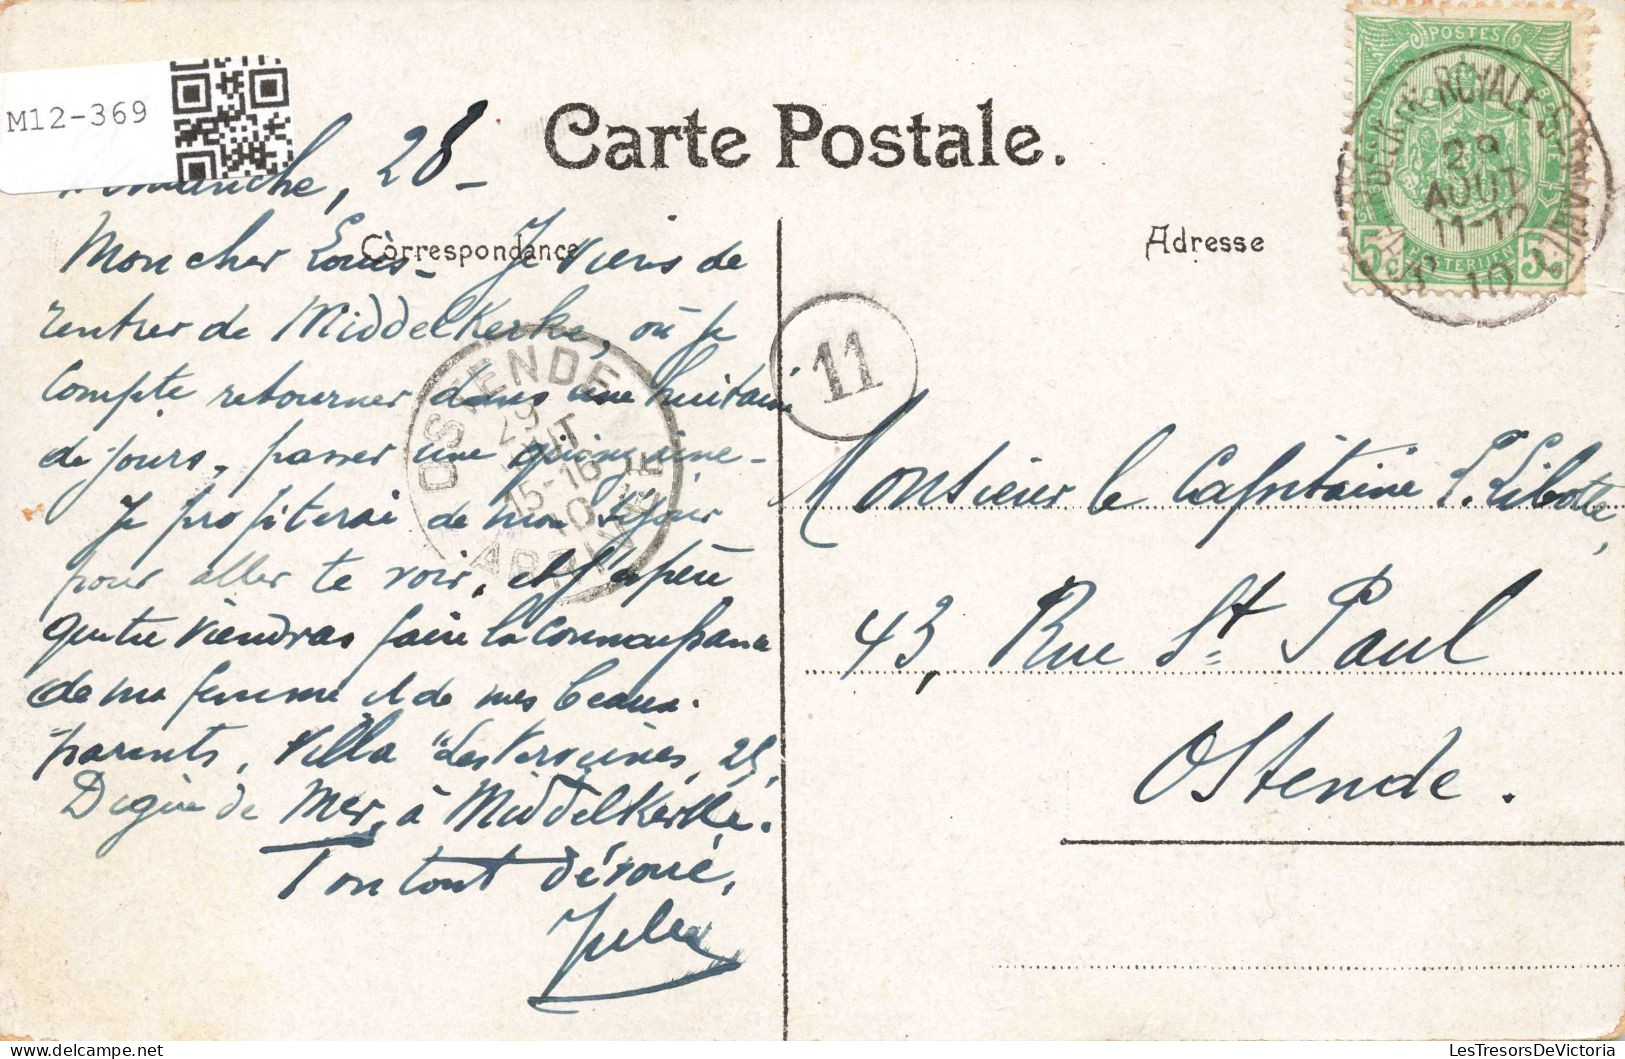 M12-369
Carte Postale.
Dimanche, 28 –
Correspondance
Mon cher Louis – Je viens de
rentrer de Middelkerke, où je
compte retourner dans une huitaine
de jours, passer une quinzaine –
Je profiterai de mon séjour
pour aller te voir, et j'espère
que tu viendras faire la connaissance
de ma femme et de mes beaux-
parents, Villa "Les Verveines, 25,
Digue de Mer, à Middelkerke.
Ton tout dévoué,
Jules
OSTENDE
29
AOUT
15-16
10
ARRIVEE
11
Adresse
POSTES
5c
5c
POSTERIJEN
ROYALE
29
AOUT
11-12
10
Monsieur le Capitaine L. Libotte,
43, Rue St Paul
Ostende.
LesTresorsDeVictoria